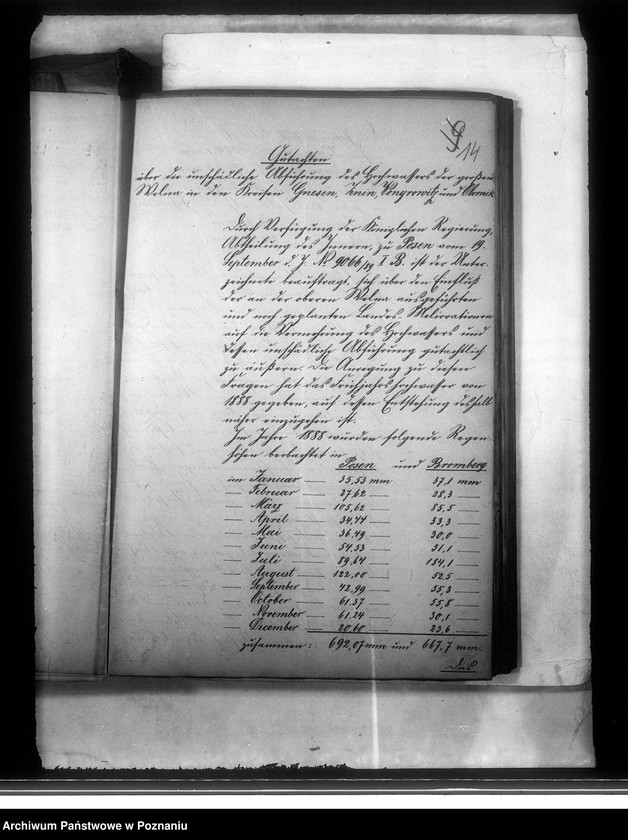 9
14
Gutachten
über die unschädliche Abführung des Hochwassers der großen
Welna in den Kreisen Gnesen, Znin, Wongrowitz und Obornik
Durch Verfügung der Königlichen Regierung,
Abtheilung des Innern, zu Posen vom 19.
September d. J. No 9066/89 I B. ist der Unter-
zeichnete beauftragt, sich über den Einfluß
der an der oberen Welna ausgeführten
und noch geplanten Landes-Meliorationen
auf die Vermehrung des Hochwassers und
dessen unschädliche Abführung gutachtlich
zu äußern. Die Anregung zu diesen
Fragen hat das Frühjahrshochwasser von
1888 gegeben, auf dessen Entstehung deshalb
näher einzugehen ist.
Im Jahre 1888 wurden folgende Regen-
höhen beobachtet in
Posen und Bromberg
im Januar — 35,53 mm 37,1 mm
— Februar — 27,62 — 28,3 —
— März — 105,62 — 85,5 —
— April — 34,44 — 33,3 —
— Mai — 36,49 — 30,0 —
— Juni — 54,53 — 31,1 —
— Juli — 89,64 — 184,1 —
— August — 122,00 — 52,5 —
— September — 42,99 — 55,3 —
— October — 61,37 — 55,8 —
— November — 61,24 — 30,1 —
— December — 20,60 — 23,6 —
zusammen: 692,07 mm und 667,7 mm.
Das
Archiwum Państwowe w Poznaniu